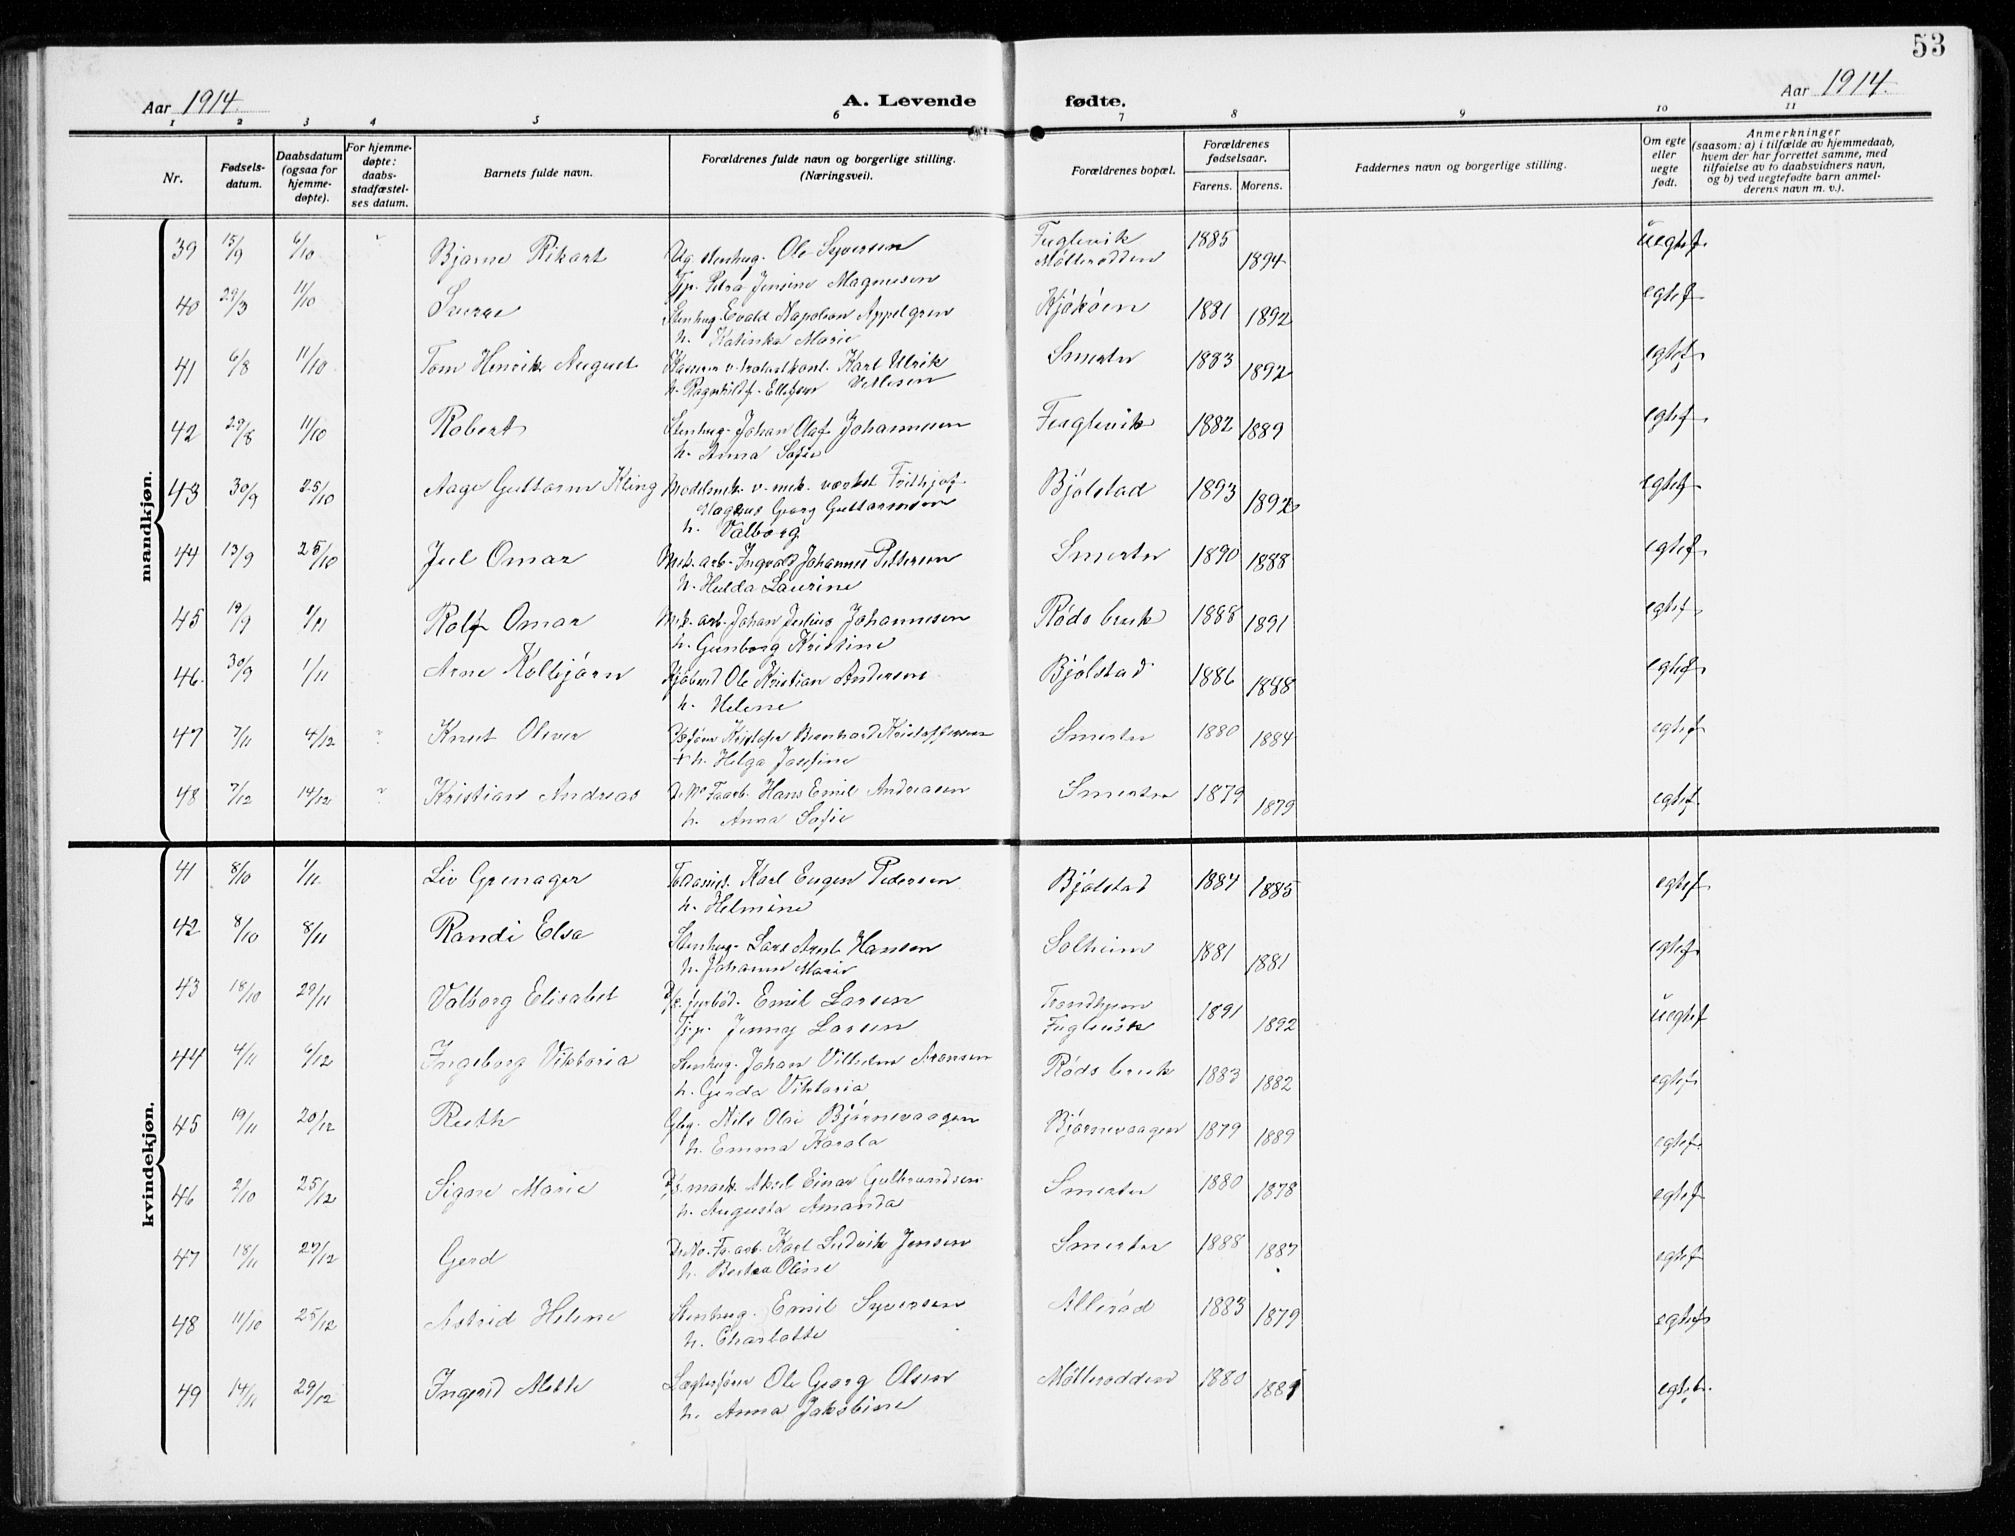 53
Aar 1914. A. Levende fødte. Aar 1914.
1 2 3 4 5 6 7 8 9 10 11
Nr.
Fødselsdatum.
Daabsdatum (ogsaa for hjemmedøpte).
For hjemmedøpte: daabsstadfæstelses datum.
Barnets fulde navn.
Forældrenes fulde navn og borgerlige stilling. (Næringsvei).
Forældrenes bopæl.
Forældrenes fødselsaar.
Farens. Morens.
Faddernes navn og borgerlige stilling.
Om egte eller uegte født.
Anmerkninger (saasom: a) i tilfælde av hjemmedaab, hvem der har forrettet samme, med tilføielse av to daabsvidners navn, og b) ved uegtefødte barn anmelderens navn m. v.).
mandkjøn.
39 15/9 6/10 Bjarne Rikart Ug. stenhug. Ole Syversen Fuglevik 1885 uegtef.
Tjp. Petra Jensine Magnusen Mølleródden 1894
40 29/3 11/10 Stenhug. Evald Napoleon Appelgren Kjøkøen 1881 1892 egtef
h. Katinka Marie
41 6/8 11/10 Tom Henrik August Karl Ulrik Smerter 1883 1892 egtef
h. Ragnhild Ellefsen
42 29/8 11/10 Robert Stenhug. Johan Olaf Johannesen Fuglevik 1882 1889 egtef
h. Anna Sofie
43 30/9 25/10 Aage Guttorm Kling Modelsnek. v. mek. værket Frithjof Bjølstad 1893 1892 egtef
Magnus Georg Guttormsen
h. Valborg
44 13/9 25/10 Juel Omar Mek. arb. Ingvald Johannes Pettersen Smerter 1890 1888 egtef
h. Hulda Laurine
45 19/9 1/11 Rolf Omar Mek. arb. Johan Julius Johannesen Røds bruk 1888 1891 egtef
h. Gunborg Kristine
46 30/9 1/11 Arne Kolbjørn Ole Kristian Andersen Bjølstad 1886 1888 egtef
h. Helene
47 7/11 4/12 Knut Oliver Kristofer Bernhard Kristoffersen Smerter 1880 1884 egtef
h. Helga Josefine
48 7/12 14/12 Kristian Andreas Hans Emil Andreasen Smerter 1879 1879 egtef
h. Anna Sofie
kvindekjøn.
41 8/10 1/11 Liv Grenager Karl Eugen Pedersen Bjølstad 1884 1885 egtef
h. Helmine
42 8/10 8/11 Randi Elsa Stenhug. Lars Hansen Solheim 1881 1881 egtef.
h. Johanne Marie
43 18/10 29/11 Valborg Elisabet fyrbød. Emil Larsen Trondhjem 1891 uegtef
Tjp. Jenny Larsen Fuglevik 1892
44 4/11 6/12 Ingeborg Viktoria Stenhug. Johan Vilhelm Aronsen Røds bruk 1883 1882 egtef
h. Gerda Viktoria
45 19/11 20/12 Ruth Gbr. Nils Olai Bjørnevaagen Bjørnevaagen 1879 1889 egtef
h. Emma Karola
46 2/10 25/12 Signe Marie Aksel Einar Gulbrandsen Smerter 1880 1878 egtef
h. Augusta Amanda
47 18/11 27/12 Gerd Fa. arb. Karl Ludvik Jensen Smerter 1888 1887 egtef
h. Oline
48 11/10 25/12 Astrid Helene Stenhug. Emil Syversen Allerød 1883 1879 egtef
h. Charlotte
49 14/11 29/12 Ingerid Mette Ole Georg Olsen Mølleródden 1880 egtef.
h. Anna Jakobine